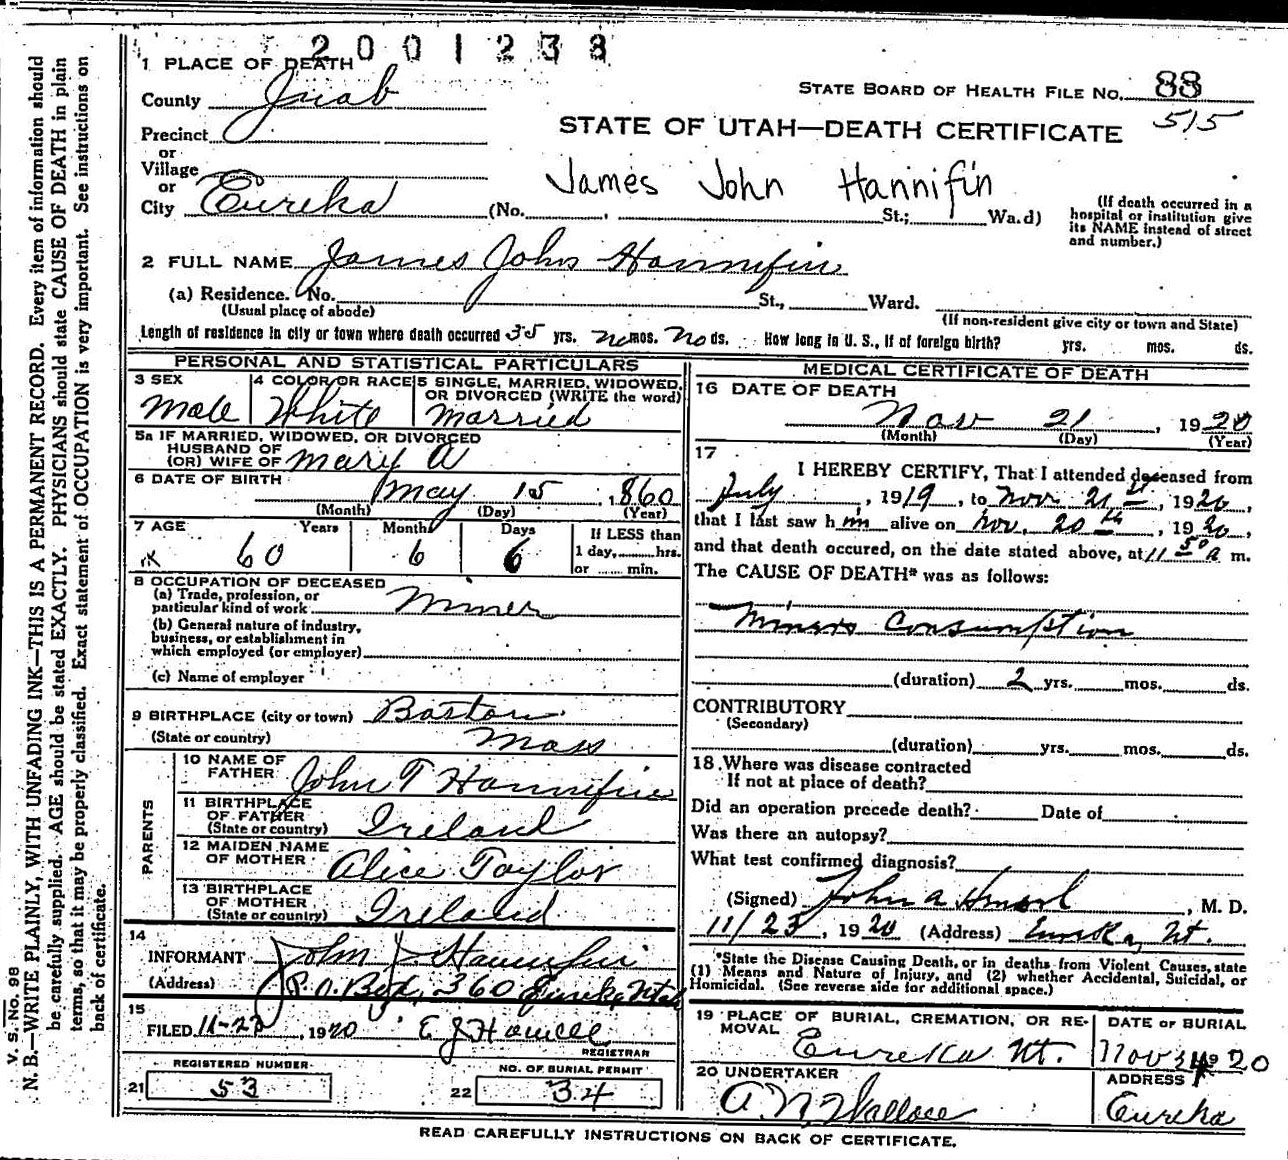 2001233
1 PLACE OF DEATH
County Juab
STATE BOARD OF HEALTH FILE NO. 88
515
Precinct
or
Village
or
City Eureka
STATE OF UTAH—DEATH CERTIFICATE
James John Hannifin
(No. , St.; Wa.d)
(If death occurred in a
hospital or institution give
its NAME instead of street
and number.)
2 FULL NAME James John Hannifin
(a) Residence. No. St., Ward.
(Usual place of abode)
(If non-resident give city or town and State)
Length of residence in city or town where death occurred 35 yrs. No mos. No ds. How long in U. S., if of foreign birth? yrs. mos. ds.
PERSONAL AND STATISTICAL PARTICULARS
3 SEX
Male
4 COLOR OR RACE
White
5 SINGLE, MARRIED, WIDOWED,
OR DIVORCED (WRITE the word)
Married
5a IF MARRIED, WIDOWED, OR DIVORCED
HUSBAND OF
(OR) WIFE OF Mary A
6 DATE OF BIRTH May 15, 1860
(Month) (Day) (Year)
7 AGE Years Months Days
60 6 6
If LESS than
1 day, hrs.
or min.
8 OCCUPATION OF DECEASED
(a) Trade, profession, or
particular kind of work Miner
(b) General nature of industry,
business, or establishment in
which employed (or employer)
(c) Name of employer
9 BIRTHPLACE (city or town) Boston
(State or country) Mass
PARENTS
10 NAME OF
FATHER John T Hannifin
11 BIRTHPLACE
OF FATHER
(State or country) Ireland
12 MAIDEN NAME
OF MOTHER Alice Taylor
13 BIRTHPLACE
OF MOTHER
(State or country) Ireland
14
INFORMANT John J Hannifin
(Address) P.O. Box, 360 Eureka, Utah
15
FILED 11-23, 1920 E J Howell
REGISTRAR
REGISTERED NUMBER
21 53
NO. OF BURIAL PERMIT
22 34
MEDICAL CERTIFICATE OF DEATH
16 DATE OF DEATH
Nov 21, 1920
(Month) (Day) (Year)
17
I HEREBY CERTIFY, That I attended deceased from
July, 1919, to Nov. 21st, 1920,
that I last saw him alive on Nov. 20th, 1920,
and that death occured, on the date stated above, at 11 50 a m.
The CAUSE OF DEATH* was as follows:
Miners Consumption
(duration) 2 yrs. mos. ds.
CONTRIBUTORY
(Secondary)
(duration) yrs. mos. ds.
18 Where was disease contracted
If not at place of death?
Did an operation precede death? Date of
Was there an autopsy?
What test confirmed diagnosis?
(Signed) John A , M. D.
11/23, 1920 (Address) Eureka, Ut.
*State the Disease Causing Death, or in deaths from Violent Causes, state
(1) Means and Nature of Injury, and (2) whether Accidental, Suicidal, or
Homicidal. (See reverse side for additional space.)
19 PLACE OF BURIAL, CREMATION, OR RE-
MOVAL Eureka Ut.
DATE OF BURIAL
Nov 1920
20 UNDERTAKER
A. N. Wallace
ADDRESS
Eureka
READ CAREFULLY INSTRUCTIONS ON BACK OF CERTIFICATE.
V. S. No. 98
N. B.—WRITE PLAINLY, WITH UNFADING INK—THIS IS A PERMANENT RECORD. Every item of information should
be carefully supplied. AGE should be stated EXACTLY. PHYSICIANS should state CAUSE OF DEATH in plain
terms, so that it may be properly classified. Exact statement of OCCUPATION is very important. See instructions on
back of certificate.